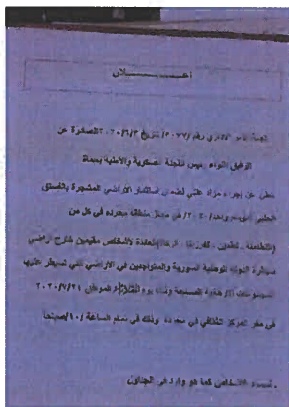 إعـــــــلان
لجنة الأمر الإداري رقم /٢٠٧٧/ تاريخ ٢٠٢٠/٦/٣ الصادرة عن
الرفيق اللواء رئيس اللجنة العسكرية والأمنية بحماة
تعلن عن إجراء مزاد علني لضمان استثمار الأراضي المشجرة بالفستق
الحلبي لموسم واحد /٢٠٢٠/ في مجال منطقة محردة في كل من
العائدة لأشخاص مقيمين خارج أراضي
سيطرة الدولة الوطنية السورية والمتواجدين في الأراضي التي تسيطر عليها
المجموعات الإرهابية المسلحة وذلك يوم الثلاثاء الموافق ٢٠٢٠/٧/٢١
في مقر المركز الثقافي في محردة وذلك في تمام الساعة /١٠/ صباحاً
أسماء الأشخاص كما هو وارد في الجداول